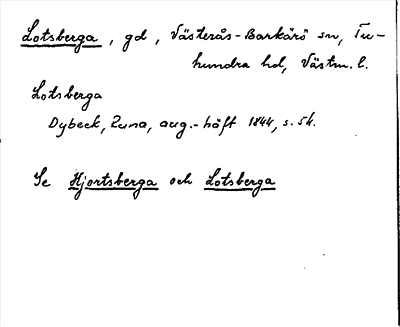 Lotsberga, gd, Västerås-Barkarö sn, Tu-
hundra hd, Västm. l.
Lotsberga
Dybeck, Runa, aug.-häft 1844, s. 54.
Se Hjortsberga och Lotsberga